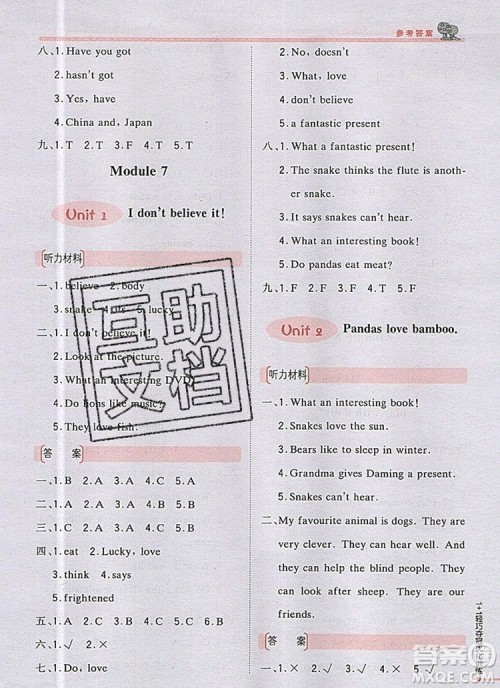 参考答案
八、1. Have you got
2. hasn't got
3. Yes, have
4. China and, Japan
九、1. T 2. T 3. F 4. T 5. T
Module 7
Unit 1 I don't believe it!
听力材料
一、1. believe 2. body
3. snake 4. us 5. lucky
二、1. I don't believe it.
2. Look at the picture.
3. What an interesting DVD!
4. Do lions eat meat?
5. They love fish.
答 案
一、1. B 2. A 3. A 4. C 5. A
二、1. B 2. A 3. A 4. B 5. A
三、1. C 2. C 3. A 4. C 5. A
四、1. eat 2. Lucky, love
3. think 4. says
5. frightened
五、1. C 2. A 3. B 4. A 5. C
六、1. √ 2. √ 3. × 4. √
七、1. Do, love
2. No, don't
3. What, love
4. don't believe
5. a fantastic present
八、1. What a fantastic present!
2. The snake thinks the flute is anoth-
er snake.
3. It says snakes can't hear.
4. What an interesting book!
5. Do pandas eat meat?
九、1. F 2. F 3. T 4. T 5. F
Unit 2 Pandas love bamboo.
听力材料
一、1. What an interesting book!
2. Snakes love the sun.
3. Bears like to sleep in winter.
4. Grandma gives Daming a present.
5. Snakes can't hear.
二、My favourite animal is dogs. They are
very interesting. They can run very
fast. They can help the blind people.
They can look after sheep. They are our
friends.
答 案
一、1. √ 2. × 3. × 4. √ 5. √
互助文档
1+1轻巧夺冠
答案圈